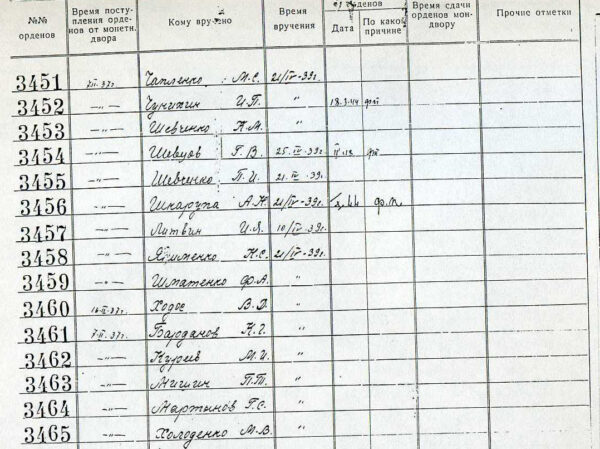 №№ орденов Время поступления орденов от монетн. двора Кому вручено Время вручения орденов Дата По какой причине Время сдачи орденов мондвору Прочие отметки
3451 7/II-37г. Чапленко М.С. 21/IV-39г.
3452 —"— Чунихин И.П. " 18.3.44
3453 —"— Шевченко Н.М. "
3454 —"— Шевцов Г.В. 25.IV.39г.
3455 —"— Шевченко П.И. 21.IV.39г.
3456 —"— Шкарупа А.Н. 21/IV-39г.
3457 —"— Литвин И.Я. 10/IV-39г.
3458 —"— Якименко Н.С. 21/IV-39г.
3459 —"— Шматенко Ф.А. "
3460 16-II-37г. Ходос В.Д. "
3461 7-II-37г. Барданов К.Г. "
3462 —"— Куреев М.И. "
3463 —"— Мишин П.Т. "
3464 —"— Мартынов Г.С. "
3465 —"— Холоденко М.В. "